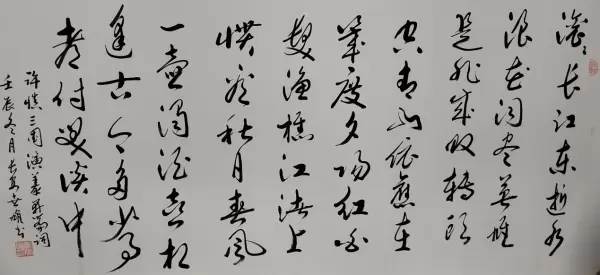 滚滚长江东逝水
浪花淘尽英雄
是非成败转头
空青山依旧在
几度夕阳红白
发渔樵江渚上
惯看秋月春风
一壶浊酒喜相
逢古今多少事
都付笑谈中
慎三国演义开篇词
壬辰冬月长安